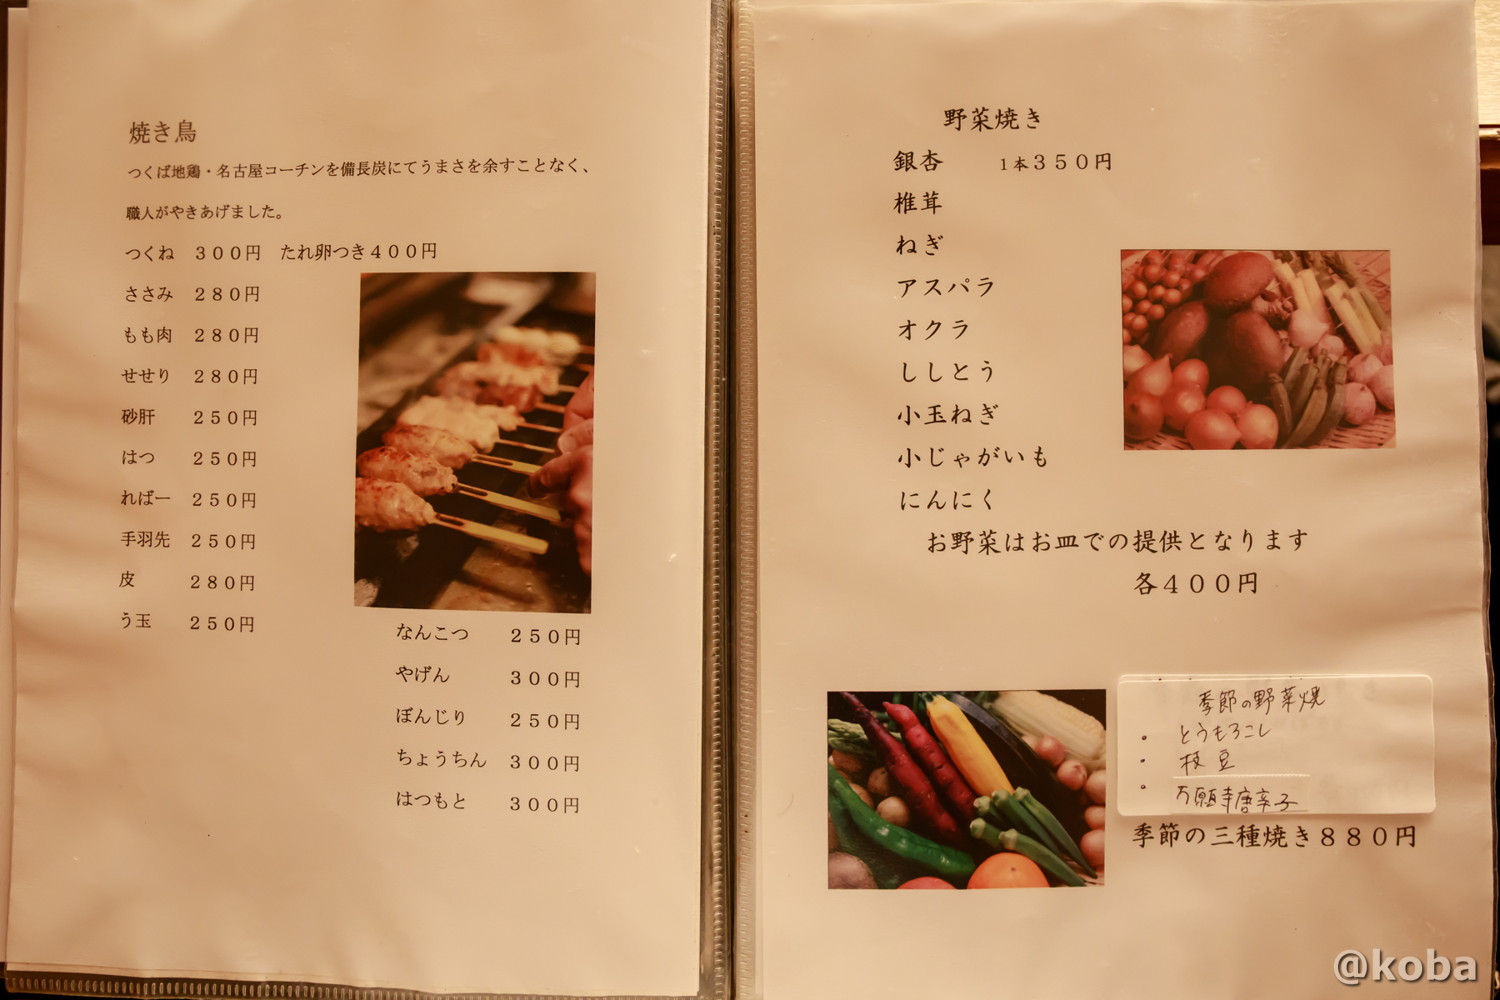 焼き鳥
つくば地鶏・名古屋コーチンを備長炭にてうまさを余すことなく、
職人がやきあげました。
つくね ３００円 たれ卵つき４００円
ささみ ２８０円
もも肉 ２８０円
せせり ２８０円
砂肝 ２５０円
はつ ２５０円
ればー ２５０円
手羽先 ２５０円
皮 ２８０円
う玉 ２５０円
なんこつ ２５０円
やげん ３００円
ぼんじり ２５０円
ちょうちん ３００円
はつもと ３００円
野菜焼き
銀杏 １本３５０円
椎茸
ねぎ
アスパラ
オクラ
ししとう
小玉ねぎ
小じゃがいも
にんにく
お野菜はお皿での提供となります
各４００円
季節の野菜焼
・とうもろこし
・枝豆
・万願寺唐辛子
季節の三種焼き８８０円
@koba